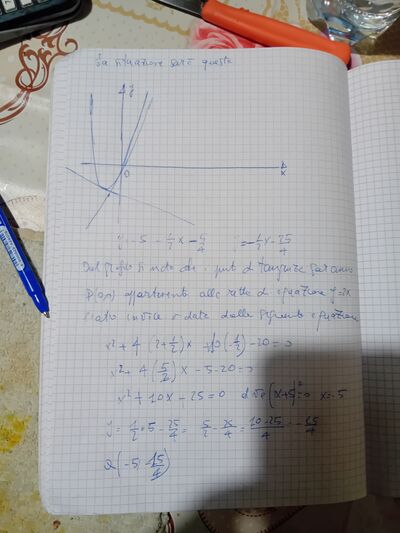 La situazione sarà questa
y
O
x
y = -5 - 1/2 x - 5/4 = -1/2 x - 25/4
Dal grafico si nota che i punti di tangenza saranno
P(0,0) appartenente alla retta di equazione y=2x
l'altro invece è dato dalla seguente equazione
x² + 4 (2+1/2) x + 10 (1/2) - 20 = 0
x² + 4 (5/2) x - 5 - 20 = 0
x² + 10x - 25 = 0 cioè (x+5)² = 0 x = -5
y = 1/2 · 5 - 25/4 = 5/2 - 25/4 = 10-25/4 = -15/4
Q(-5; -15/4)